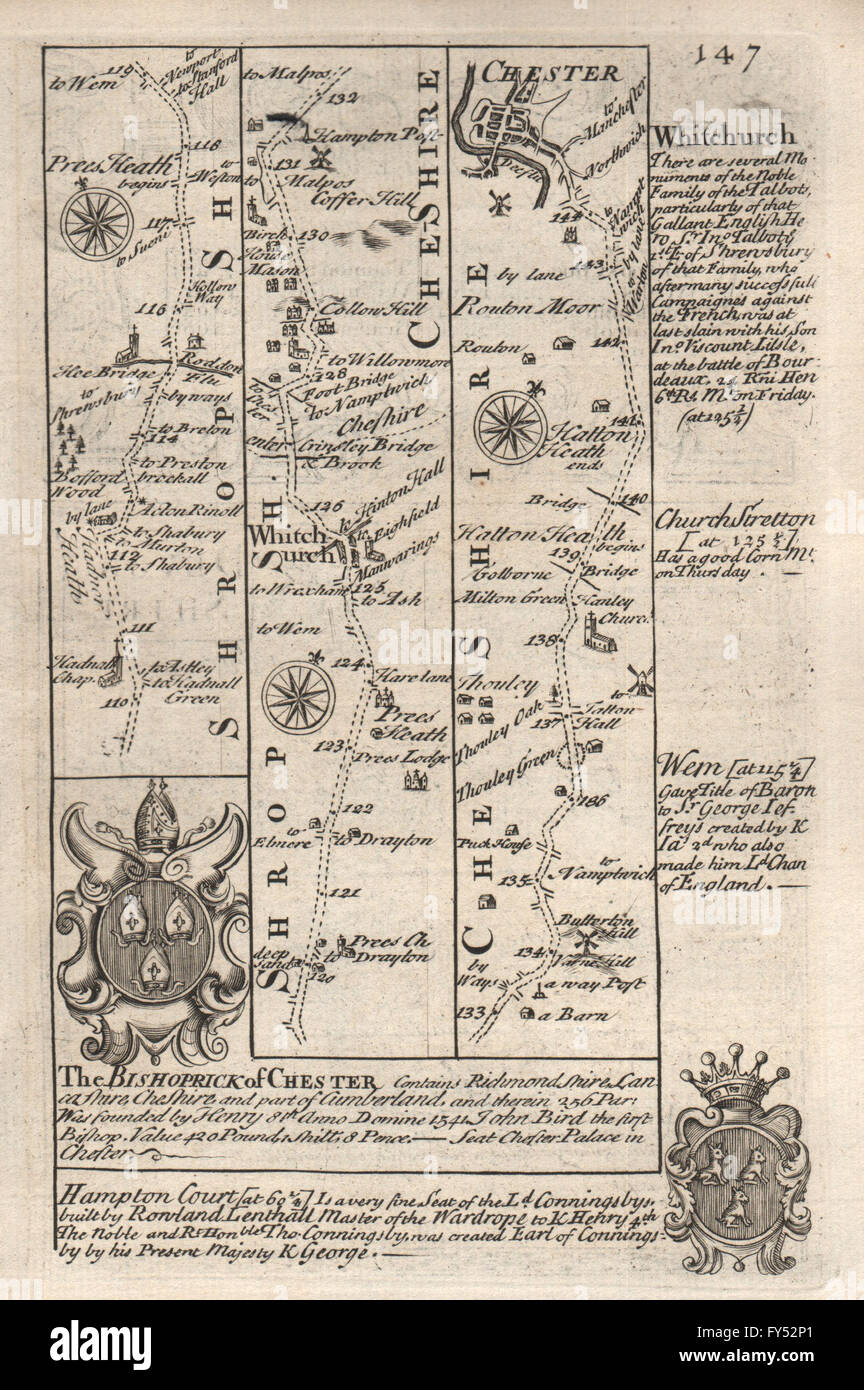 147
to Wem
119
to Newport
to Stanford
Hall
118
Prees Heath
begins
to
Weston
117
Hollow
Way
116
Roddon
Flu
Hee Bridge
to
Shrewsbury
by ways
to Breton
114
to Preston
brockall
Bofford
Wood
Acton Rinoll
by lane
to Shabury
to Murton
112
to Shabury
Heaths
111
Hadnall
Chap.
to Astley
to Hadnall
Green
110
SHROPSH
to Malpos
132
Hampton Post
131
to
Malpos
Coffer Hill
Birch
130
House
Mason
Collow Hill
to Willowmore
128
Foot Bridge
to Namptwich
to Ches
ter
Cheshire
enter
Grinsley Bridge
& Brook
126
to Hinton Hall
to Eighfield
Manwarings
Whitch
urch
to Wrexham
125
to Ash
to Wem
124
Harelane
Prees
Heath
123
Prees Lodge
122
to
Elmere
to Drayton
121
Prees Ch
to
Drayton
deep
sand
120
SHROPSH.
CHESHIRE
CHESTER
Dee flu
to
Manchester
Northwich
144
to Nampt
wich
by lane
to
Tarton
by lane
143
Routon Moor
142
Routon
141
Hatton
Heath
ends
Bridge
140
Hatton Heath
begins
139
Golborne
Bridge
Milton Green
Hanley
Church
138
Thouley
to
Tatton
Hall
Thouley Oak
137
Thouley Green
186
Puck House
to
Namptwich
135
Butterton
Hill
134
Varne Hill
by
Ways
a way Post
133
a Barn
CHESHIRE
Whitchurch
There are several Mo
numents of the Noble
Family of the Talbots,
particularly of that
Gallant English He
ro Sr. Jno. Talbot ye
1st E. of Shrewsbury
of that Family, who
after many successfull
Campaignes against
the French, was at
last slain with his Son
Jno. Viscount Lisle,
at the battle of Bour
deaux, 24 Rni Hen
6th Rs. Mt. on Friday.
(at 125 1/4)
Church Stretton
[at 125 1/2]
Has a good Corn Mt.
on Thursday. —
Wem [at 115 1/4]
Gave Title of Baron
to Sr George Jef
freys created by K
Ja: 2d who also
made him Ld Chan
of England. —
The BISHOPRICK of CHESTER Contains Richmondshire, Lan
cashire, Cheshire, and part of Cumberland, and therein 256 Par:
Was founded by Henry 8th Anno Domine 1541, John Bird the first
Bishop. Value 420 Pound 1 shill: 8 Pence. — Seat Chester Palace in
Chester
Hampton Court [at 60 1/4] Is a very fine Seat of the Ld Conningsbys,
built by Rowland Lenthall Master of the Wardrope to K Henry 4th
The Noble and Rt Honble Tho: Conningsby, was created Earl of Connings-
by by his Present Majesty K George. —
alamy
Image ID: FY52P1
www.alamy.com